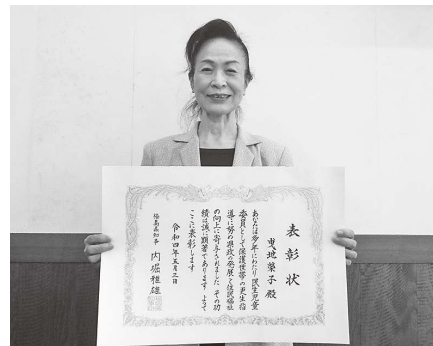 表彰状
曳地榮子殿
あなたは多年にわたり民生児童
委員として保護世帯の更生指
導に努め県政の発展と住民福祉
の向上に寄与されました その功
績は誠に顕著であります よって
ここに表彰します
令和四年五月三日
福島県知事 内堀雅雄